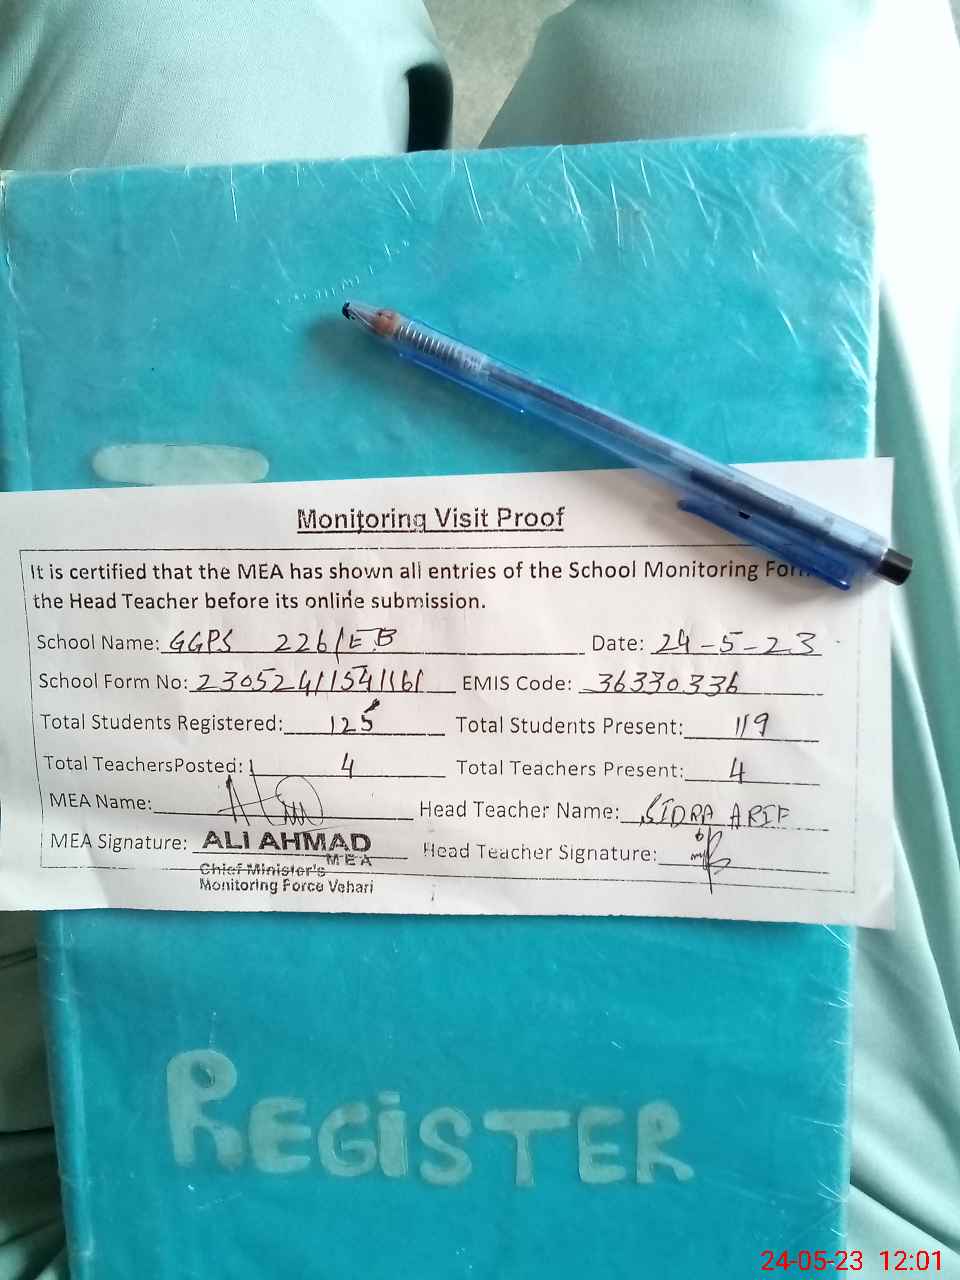 Monitoring Visit Proof
It is certified that the MEA has shown all entries of the School Monitoring Form
the Head Teacher before its online submission.
School Name: GGPS 226/E.B Date: 24-5-23
School Form No: 23052411541161 EMIS Code: 36330336
Total Students Registered: 125 Total Students Present: 119
Total TeachersPosted: 4 Total Teachers Present: 4
MEA Name: Head Teacher Name: SIDRA ARIF
MEA Signature: ALI AHMAD Head Teacher Signature:
MEA
Chief Minister's
Monitoring Force Vehari
REGiSTER
24-05-23 12:01